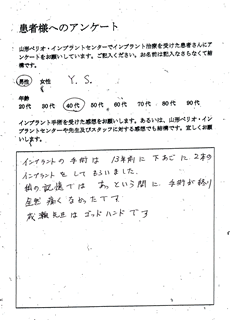 患者様へのアンケート
山形ペリオ・インプラントセンターでインプラント治療を受けた患者さんにア
ンケートをお願いしています。ご記入ください。お名前は記入なさらなくて結
構です。
男性 女性 Y. S.
年齢
20代 30代 40代 50代 60代 70代 80代 90代
インプラント手術を受けた感想をお願いします。あるいは、山形ペリオ・イン
プラントセンターや先生及びスタッフに対する感想でも結構です。宜しくお願
いします。
インプラントの手術は 13年前に 下あごに2本の
インプラントを してもらいました。
私の記憶では あっという間に 手術が終り
全然 痛くなかったです。
成瀬先生は ゴッドハンドです